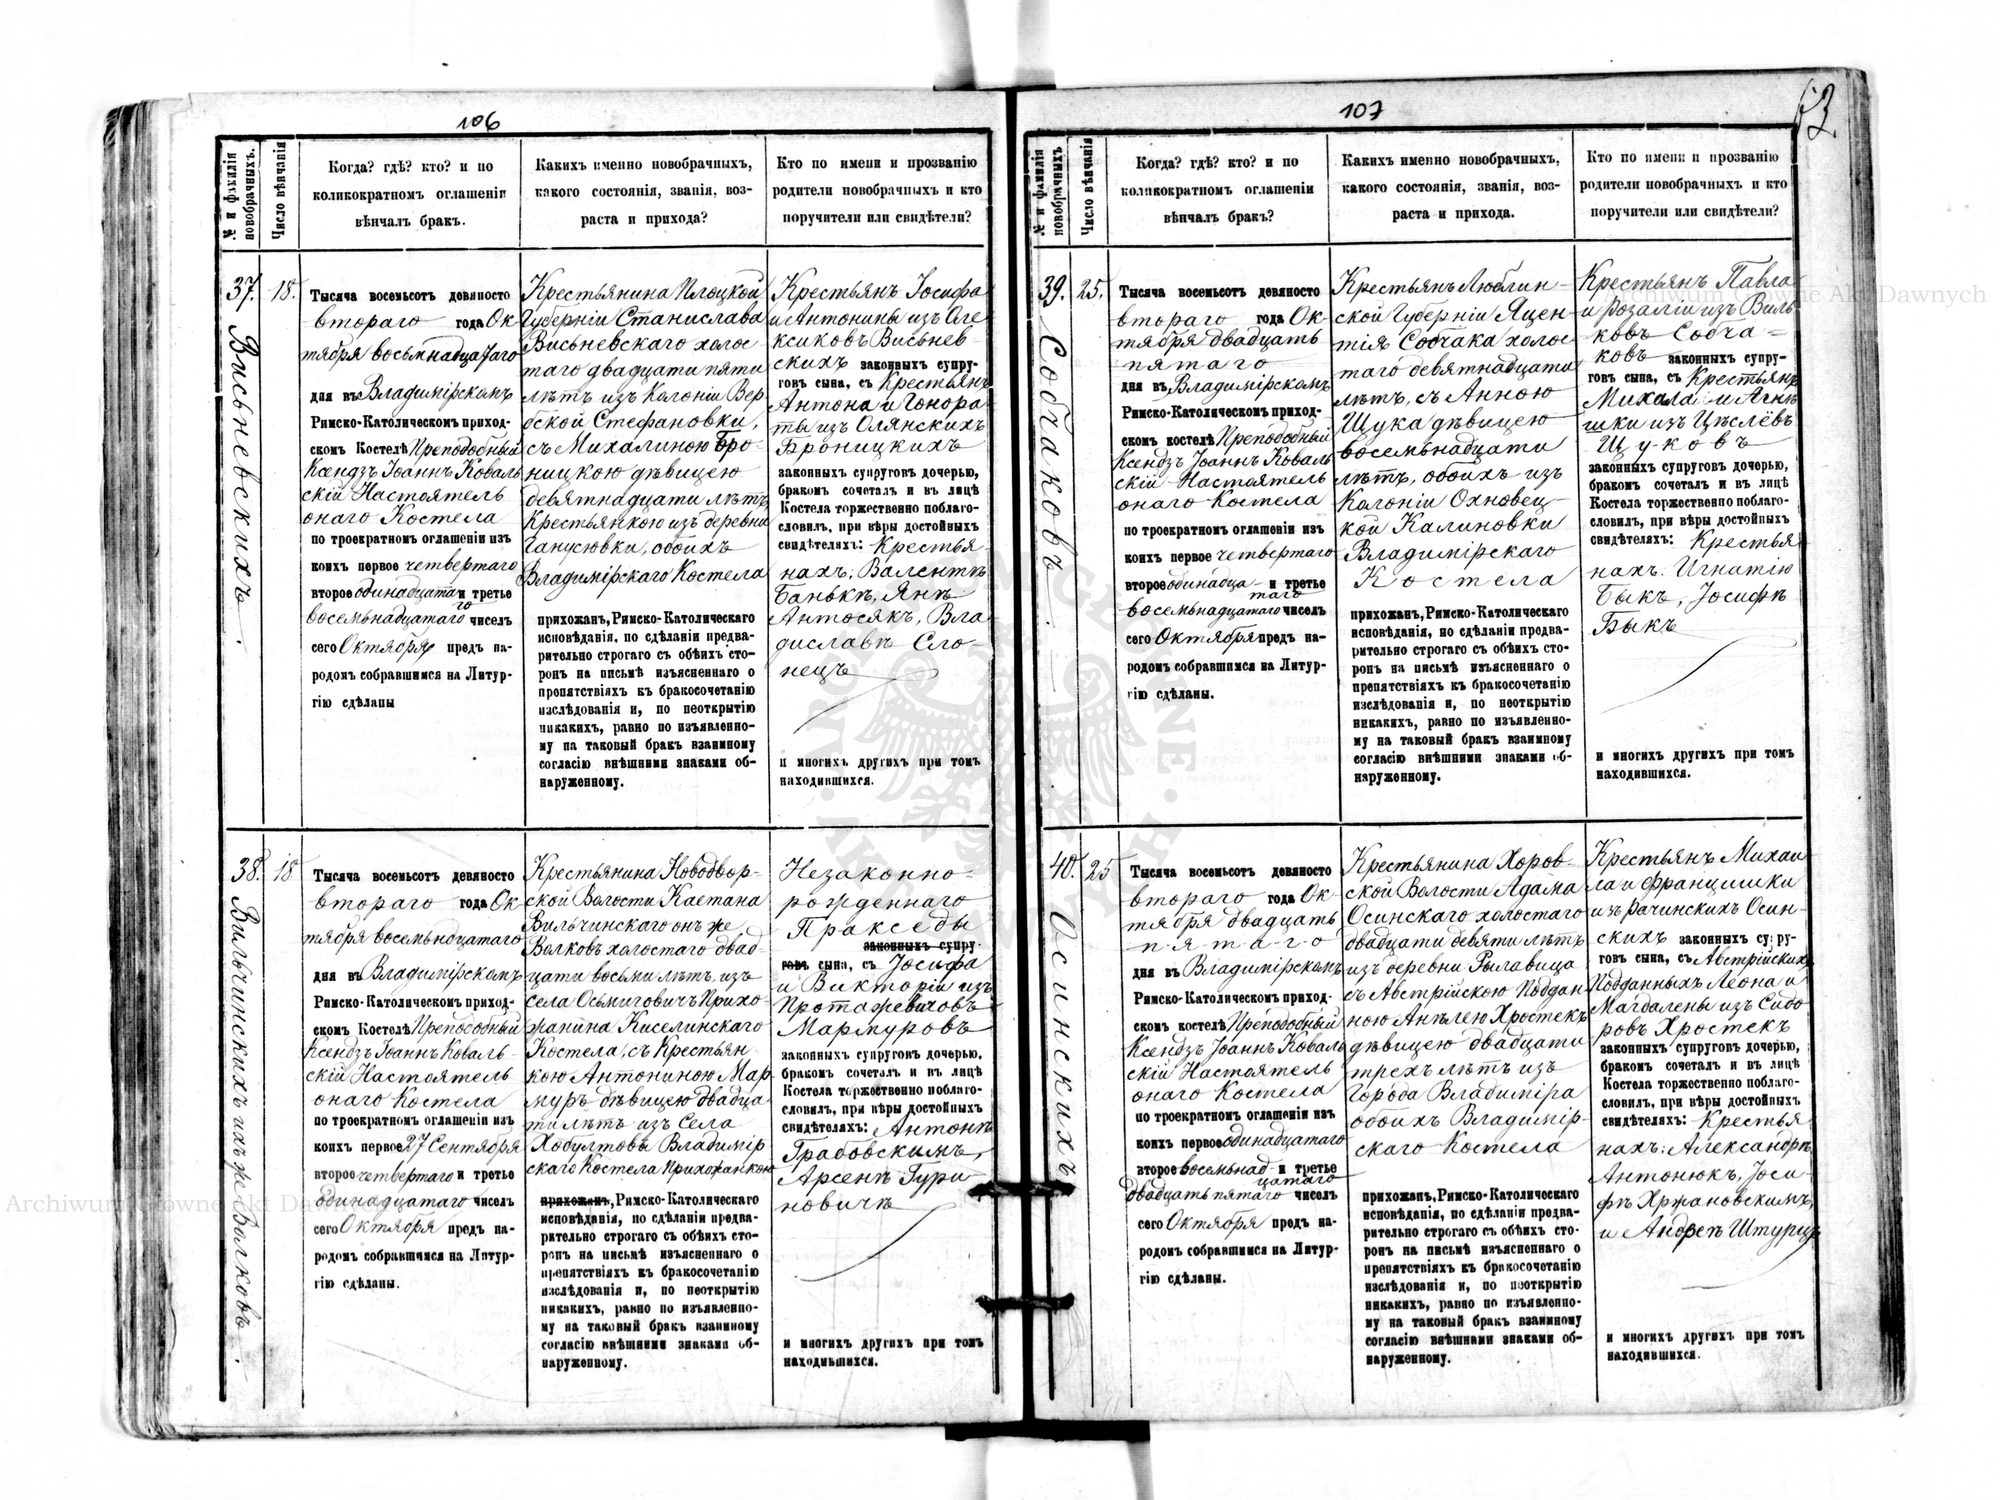 106
№ и фамилія новобрачныхъ.
Число вѣнчанія
Когда? гдѣ? кто? и по
коликократномъ оглашеніи
вѣнчалъ бракъ.
Какихъ именно новобрачныхъ,
какого состоянія, званія, воз-
раста и прихода?
Кто по имени и прозванію
родители новобрачныхъ и кто
поручители или свидѣтели?
37.
Висьневскихъ.
18.
Тысяча восемьсотъ девяносто
втораго года Ок-
тября восьмнадцатаго
дня въ Владимірскомъ
Римско-Католическомъ приход-
скомъ Костелѣ Преподобный
Ксендзъ Іоаннъ Коваль
скій Настоятель
онаго Костела
по троекратномъ оглашеніи изъ
коихъ первое четвертаго
второе одинадцатаго и третье
восемьнадцатаго чиселъ
сего Октября предъ на-
родомъ собравшимся на Литур-
гію сдѣланы
Крестьянина Плоцкой
Губерніи Станислава
Висьневскаго холос-
таго двадцати пяти
лѣтъ изъ Колоніи Вер
бской Стефановки,
съ Михалиною Бро-
ницкою дѣвицею
девятнадцати лѣтъ
Крестьянкою изъ деревни
Ганусювки, обоихъ
Владимірскаго Костела
прихожан, Римско-Католическаго
исповѣданія, по сдѣланіи предва-
рительно строгаго съ обѣихъ сто-
ронъ на письмѣ изъясненнаго о
препятствіяхъ къ бракосочетанію
изслѣдованія и, по неоткрытію
никакихъ, равно по изъявленно-
му на таковый бракъ взаимному
согласію внѣшними знаками об-
наруженному.
Крестьянъ Іосифа
и Антонины изъ Оле
ксиковъ Висьнев-
скихъ законныхъ супру-
говъ сына, съ Крестьянъ
Антона и Гонора-
ты изъ Олянскихъ
Броницкихъ
законныхъ супруговъ дочерью,
бракомъ сочеталъ и въ лицѣ
Костела торжественно поблаго-
словилъ, при вѣры достойныхъ
свидѣтеляхъ: Крестья-
нахъ: Валентѣ
Банькѣ, Янѣ
Антосякѣ, Вла-
диславѣ Сло-
нецъ
и многихъ другихъ при томъ
находившихся.
38.
Вильчинскихъ ихъ же Волковъ.
18
Тысяча восемьсотъ девяносто
втораго года Ок-
тября восемьндцатаго
дня въ Владимірскомъ
Римско-Католическомъ приход-
скомъ Костелѣ Преподобный
Ксендзъ Іоаннъ Коваль-
скій Настоятель
онаго Костела
по троекратномъ оглашеніи изъ
коихъ первое 27 Сентября
второе четвертаго и третье
одинадцатаго чиселъ
сего Октября предъ на-
родомъ собравшимся на Литур-
гію сдѣланы.
Крестьянина Новодвор-
ской Волости Каетана
Вильчинскаго онъ же
Волковъ холостаго двад-
цати восьми лѣтъ изъ
села Осьмиговичъ Прихо-
жанина Киселинскаго
Костела, съ Крестьян-
кою Антониною Мар-
муръ дѣвицею двадца
ти лѣтъ изъ Села
Хобултова Владимір
скаго Костела прихожанкою
прихожан, Римско-Католическаго
исповѣданія, по сдѣланіи предва-
рительно строгаго съ обѣихъ сто-
ронъ на письмѣ изъясненнаго о
препятствіяхъ къ бракосочетанію
изслѣдованія и, по неоткрытію
никакихъ, равно по изъявленно-
му на таковый бракъ взаимному
согласію внѣшними знаками об-
наруженному.
Незаконно-
рожденнаго
Пракседы
законныхъ супру-
говъ сына, съ Іосифа
и Викторіи изъ
Протажевичовъ
Мармуровъ
законныхъ супруговъ дочерью,
бракомъ сочеталъ и въ лицѣ
Костела торжественно поблаго-
словилъ, при вѣры достойныхъ
свидѣтеляхъ: Антонѣ
Грабовскимъ,
Арсенѣ Гури
новичѣ
и многихъ другихъ при томъ
находившихся.
107
63.
№ и фамилія новобрачныхъ
Число вѣнчанія
Когда? гдѣ? кто? и по
коликократномъ оглашеніи
вѣнчалъ бракъ?
Какихъ именно новобрачныхъ,
какого состоянія, званія, воз-
раста и прихода.
Кто по имени и прозванію
родители новобрачныхъ и кто
поручители или свидѣтели?
39.
Собчаковъ
25.
Тысяча восемьсотъ девяносто
втораго года Ок-
тября двадцать
пятаго
дня въ Владимірскомъ
Римско-Католическомъ приход-
скомъ костелѣ Преподобный
Ксендзъ Іоаннъ Коваль
скій Настоятель
онаго Костела
по троекратномъ оглашеніи изъ
коихъ первое четвертаго
второе одинадца- и третье
таго
восемьнадцатаго чиселъ
сего Октября предъ на-
родомъ собравшимся на Литур-
гію сдѣланы.
Крестьянъ Люблин-
ской Губерніи Яцен-
тія Собчака холос
таго девятнадцати
лѣтъ, съ Анною
Щука дѣвицею
восемьнадцати
лѣтъ, обоихъ изъ
Колоніи Охновец-
кой Калиновки
Владимірскаго
Костела
прихожан, Римско-Католическаго
исповѣданія, по сдѣланіи предва-
рительно строгаго съ обѣихъ сто-
ронъ на письмѣ изъясненнаго о
препятствіяхъ къ бракосочетанію
изслѣдованія и, по неоткрытію
никакихъ, равно по изъявленно-
му на таковый бракъ взаимному
согласію внѣшними знаками об-
наруженному.
Крестьянъ Павла
и Розаліи изъ Виль-
ковъ Собча-
ковъ законныхъ супру-
говъ сына, съ Крестьянъ
Михала и Агнѣ
шки изъ Цѣслёвъ
Щуковъ
законныхъ супруговъ дочерью,
бракомъ сочеталъ и въ лицѣ
Костела торжественно поблаго-
словилъ, при вѣры достойныхъ
свидѣтеляхъ: Крестья-
нахъ: Игнатію
Быкъ, Іосифѣ
Быкъ
и многихъ другихъ при томъ
находившихся.
40.
Осинскихъ
25
Тысяча восемьсотъ девяносто
втораго года Ок-
тября двадцать
пятаго
дня въ Владимірскомъ
Римско-Католическомъ приход-
скомъ костелѣ Преподобный
Ксендзъ Іоаннъ Коваль
скій Настоятель
онаго Костела
по троекратномъ оглашеніи изъ
коихъ первое одинадцатаго
второе восемьнад- и третье
цатаго
двадцать пятаго чиселъ
сего Октября предъ на-
родомъ собравшимся на Литур-
гію сдѣланы.
Крестьянина Хоров-
ской Волости Адама
Осинскаго холостаго
двадцати девяти лѣтъ
изъ деревни Рылавица
съ Австрійскою Поддан
ною Анѣлею Хростекъ
дѣвицею двадцати
трехъ лѣтъ изъ
Города Владиміра
обоихъ Владимір-
скаго Костела
прихожан, Римско-Католическаго
исповѣданія, по сдѣланіи предва-
рительно строгаго съ обѣихъ сто-
ронъ на письмѣ изъясненнаго о
препятствіяхъ къ бракосочетанію
изслѣдованія и, по неоткрытію
никакихъ, равно по изъявленно-
му на таковый бракъ взаимному
согласію внѣшними знаками об-
наруженному.
Крестьянъ Михаи
ла и Францишки
изъ Рачинскихъ Осин-
скихъ законныхъ супру-
говъ сына, съ Австрійскихъ
Подданныхъ Леона и
Магдалены изъ Сидо
ровъ Хростекъ
законныхъ супруговъ дочерью,
бракомъ сочеталъ и въ лицѣ
Костела торжественно поблаго-
словилъ, при вѣры достойныхъ
свидѣтеляхъ: Крестья
нахъ: Александрѣ
Антонюкъ, Іоси-
фѣ Хржановскимъ,
и Андреѣ Штурцъ
и многихъ другихъ при томъ
находившихся.
Archiwum Główne Akt Dawnych
Archiwum Główne Akt Dawnych